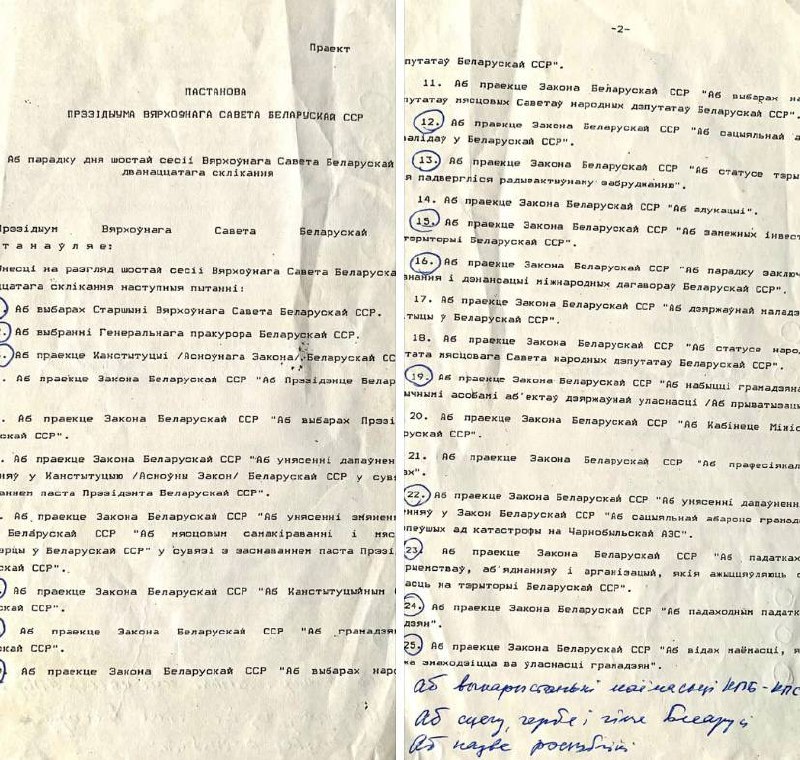 Праект
ПАСТАНОВА
ПРЭЗІДЫУМА ВЯРХОЎНАГА САВЕТА БЕЛАРУСКАЙ ССР
Аб парадку дня шостай сесіі Вярхоўнага Савета Беларускай
дванаццатага склікання
Прэзідыум Вярхоўнага Савета Беларускай
танаўляе:
Унесці на разгляд шостай сесіі Вярхоўнага Савета Беларуска
ццатага склікання наступныя пытанні:
. Аб выбарах Старшыні Вярхоўнага Савета Беларускай ССР.
. Аб выбранні Генеральнага пракурора Беларускай ССР.
. Аб праекце Канстытуцыі /Асноўнага Закона/ Беларускай СС
. Аб праекце Закона Беларускай ССР "Аб Прэзідэнце Белар
. Аб праекце Закона Беларускай ССР "Аб выбарах Прэзі
скай ССР".
. Аб праекце Закона Беларускай ССР "Аб унясенні дапаўнен
няў у Канстытуцыю /Асноўны Закон/ Беларускай ССР у сувя
аннем паста Прэзідэнта Беларускай ССР".
. Аб праекце Закона Беларускай ССР "Аб унясенні змянен
Беларускай ССР "Аб мясцовым самакіраванні і мяс
арцы ў Беларускай ССР" у сувязі з заснаваннем паста Прэзі
скай ССР".
Аб праекце Закона Беларускай ССР "Аб Канстытуцыйным
скай ССР".
Аб праекце Закона Беларускай ССР "Аб грамадзян
скай ССР".
Аб праекце Закона Беларускай ССР "Аб выбарах наро
-2-
путатаў Беларускай ССР".
11. Аб праекце Закона Беларускай ССР "Аб выбарах на
путатаў мясцовых Саветаў народных дэпутатаў Беларускай ССР".
12. Аб праекце Закона Беларускай ССР "Аб сацыяльнай а
валідаў у Беларускай ССР".
13. Аб праекце Закона Беларускай ССР "Аб статусе тэры
я падвергліся радыеактыўнаму забруджанню".
14. Аб праекце Закона Беларускай ССР "Аб адукацыі".
15. Аб праекце Закона Беларускай ССР "Аб замежных інвест
тэрыторыі Беларускай ССР".
16. Аб праекце Закона Беларускай ССР "Аб парадку заключ
знання і дэнансацыі міжнародных дагавораў Беларускай ССР".
17. Аб праекце Закона Беларускай ССР "Аб дзяржаўнай маладз
тыцы ў Беларускай ССР".
18. Аб праекце Закона Беларускай ССР "Аб статусе наро
тата мясцовага Савета народных дэпутатаў Беларускай ССР".
19. Аб праекце Закона Беларускай ССР "Аб набыцці грамадзяна
ычнымі асобамі аб'ектаў дзяржаўнай уласнасці /Аб прыватызац
20. Аб праекце Закона Беларускай ССР "Аб Кабінеце Мініс
рускай ССР".
21. Аб праекце Закона Беларускай ССР "Аб прафесіянал
ах".
22. Аб праекце Закона Беларускай ССР "Аб унясенні дапаўненн
нняў у Закон Беларускай ССР "Аб сацыяльнай абароне грамадз
пеўшых ад катастрофы на Чарнобыльскай АЭС".
23. Аб праекце Закона Беларускай ССР "Аб падатках
рыемстваў, аб'яднанняў і арганізацый, якія ажыццяўляюць
асць на тэрыторыі Беларускай ССР".
24. Аб праекце Закона Беларускай ССР "Аб падаходным падатк
дзян".
25. Аб праекце Закона Беларускай ССР "Аб відах маёмасці, я
жа знаходзіцца ва ўласнасці грамадзян".
Аб выкарыстаньні маёмасьці КПБ-КПС
Аб сцягу, гербе і гімне Беларусі
Аб назве рэспублікі